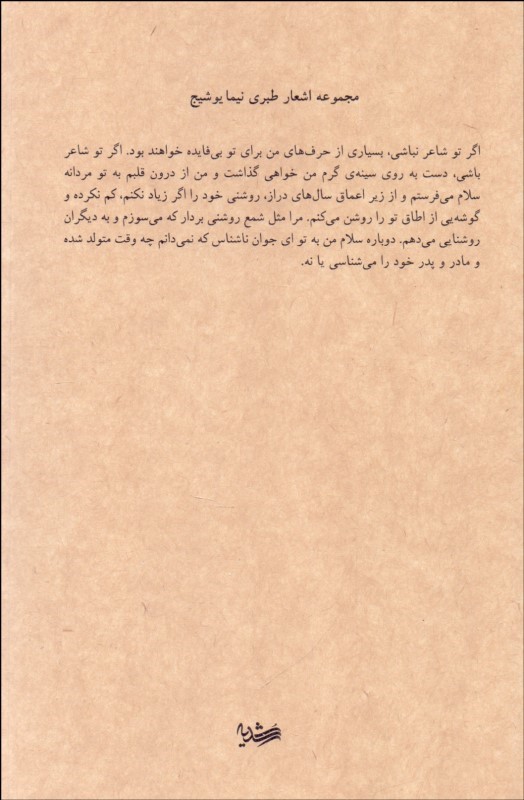 مجموعه اشعار طبری نیما یوشیج
اگر تو شاعر نباشی، بسیاری از حرف‌های من برای تو بی‌فایده خواهند بود. اگر تو شاعر
باشی، دست به روی سینه‌ی گرم من خواهی گذاشت و من از درون قلبم به تو مردانه
سلام می‌فرستم و از زیر اعماق سال‌های دراز، روشنی خود را اگر زیاد نکنم، کم نکرده و
گوشه‌یی از اطاق تو را روشن می‌کنم. مرا مثل شمع روشنی بردار که می‌سوزم و به دیگران
روشنایی می‌دهم. دوباره سلام من به تو ای جوان ناشناس که نمی‌دانم چه وقت متولد شده
و مادر و پدر خود را می‌شناسی یا نه.
رشدیه